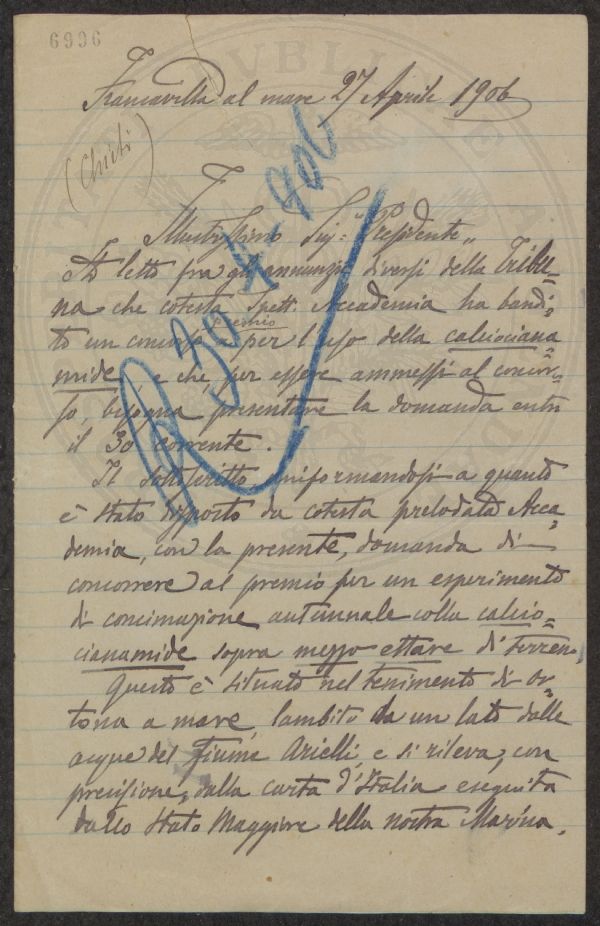 6996
Francavilla al mare 27 Aprile 1906
(Chieti)
Illustrissimo Sig: "Presidente"
Ho letto fra gli annunzi diversi della Tribu=
na che cotesta Spett: Accademia ha bandi=
to un concorso premio per l'uso della calciociana=
mide, e che, per essere ammessi al concor=
so, bisogna presentare la domanda entro
il 30 corrente.
Il sottoscritto, uniformandosi a quanto
è stato disposto da cotesta prelodata Acca=
demia, con la presente, domanda di
concorrere al premio per un esperimento
di concimazione autunnale colla calcio=
cianamide sopra mezzo ettare di terreno.
Questo è situato nel tenimento di Or=
tona a mare, lambito da un lato dalle
acque del fiume Arielli, e si rileva, con
precisione, dalla carta d'Italia eseguita
dallo Stato Maggiore della nostra Marina.
R 30 906